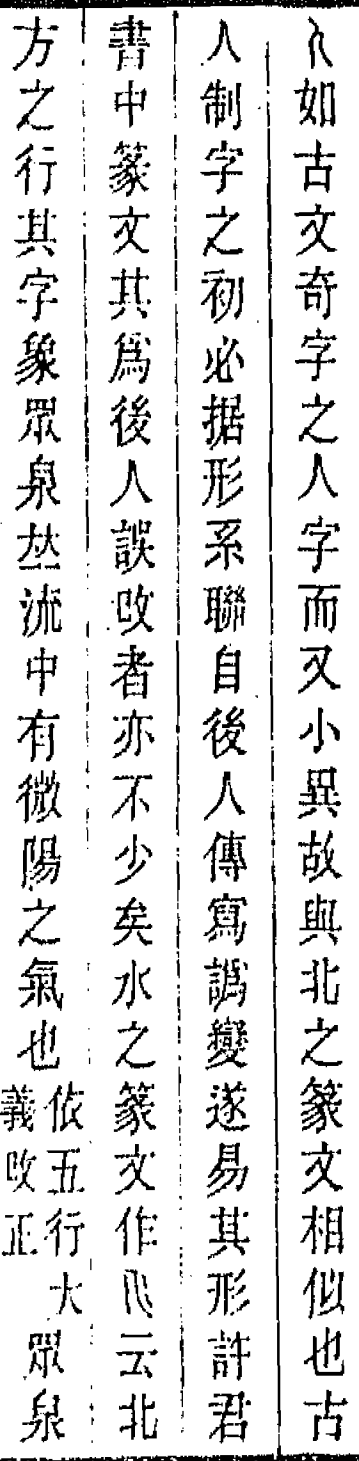 如古文奇字之人字而又小異故與北之篆文相似也古
人制字之初必据形系聯自後人傳寫譌變遂易其形許君
書中篆文其爲後人誤改者亦不少矣水之篆文作 云北
方之行其字象眾泉𠀤流中有微陽之氣也依五行大義改正眾泉